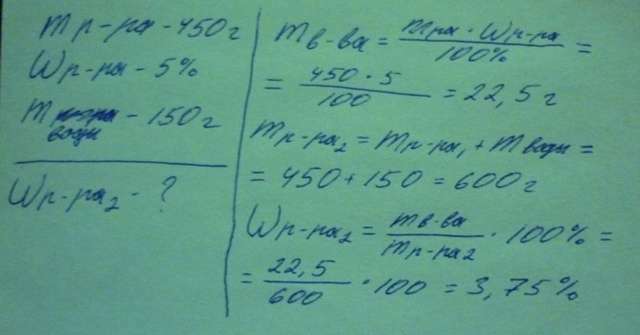 m р-ра - 450 г
W р-ра - 5%
m воды - 150 г
W р-ра₂ - ?
m в-ва = m ра · W р-ра / 100% =
= 450 · 5 / 100 = 22,5 г
m р-ра₂ = m р-ра₁ + m воды =
= 450 + 150 = 600 г
W р-ра₂ = m в-ва / m р-ра2 · 100% =
= 22,5 / 600 · 100 = 3,75%